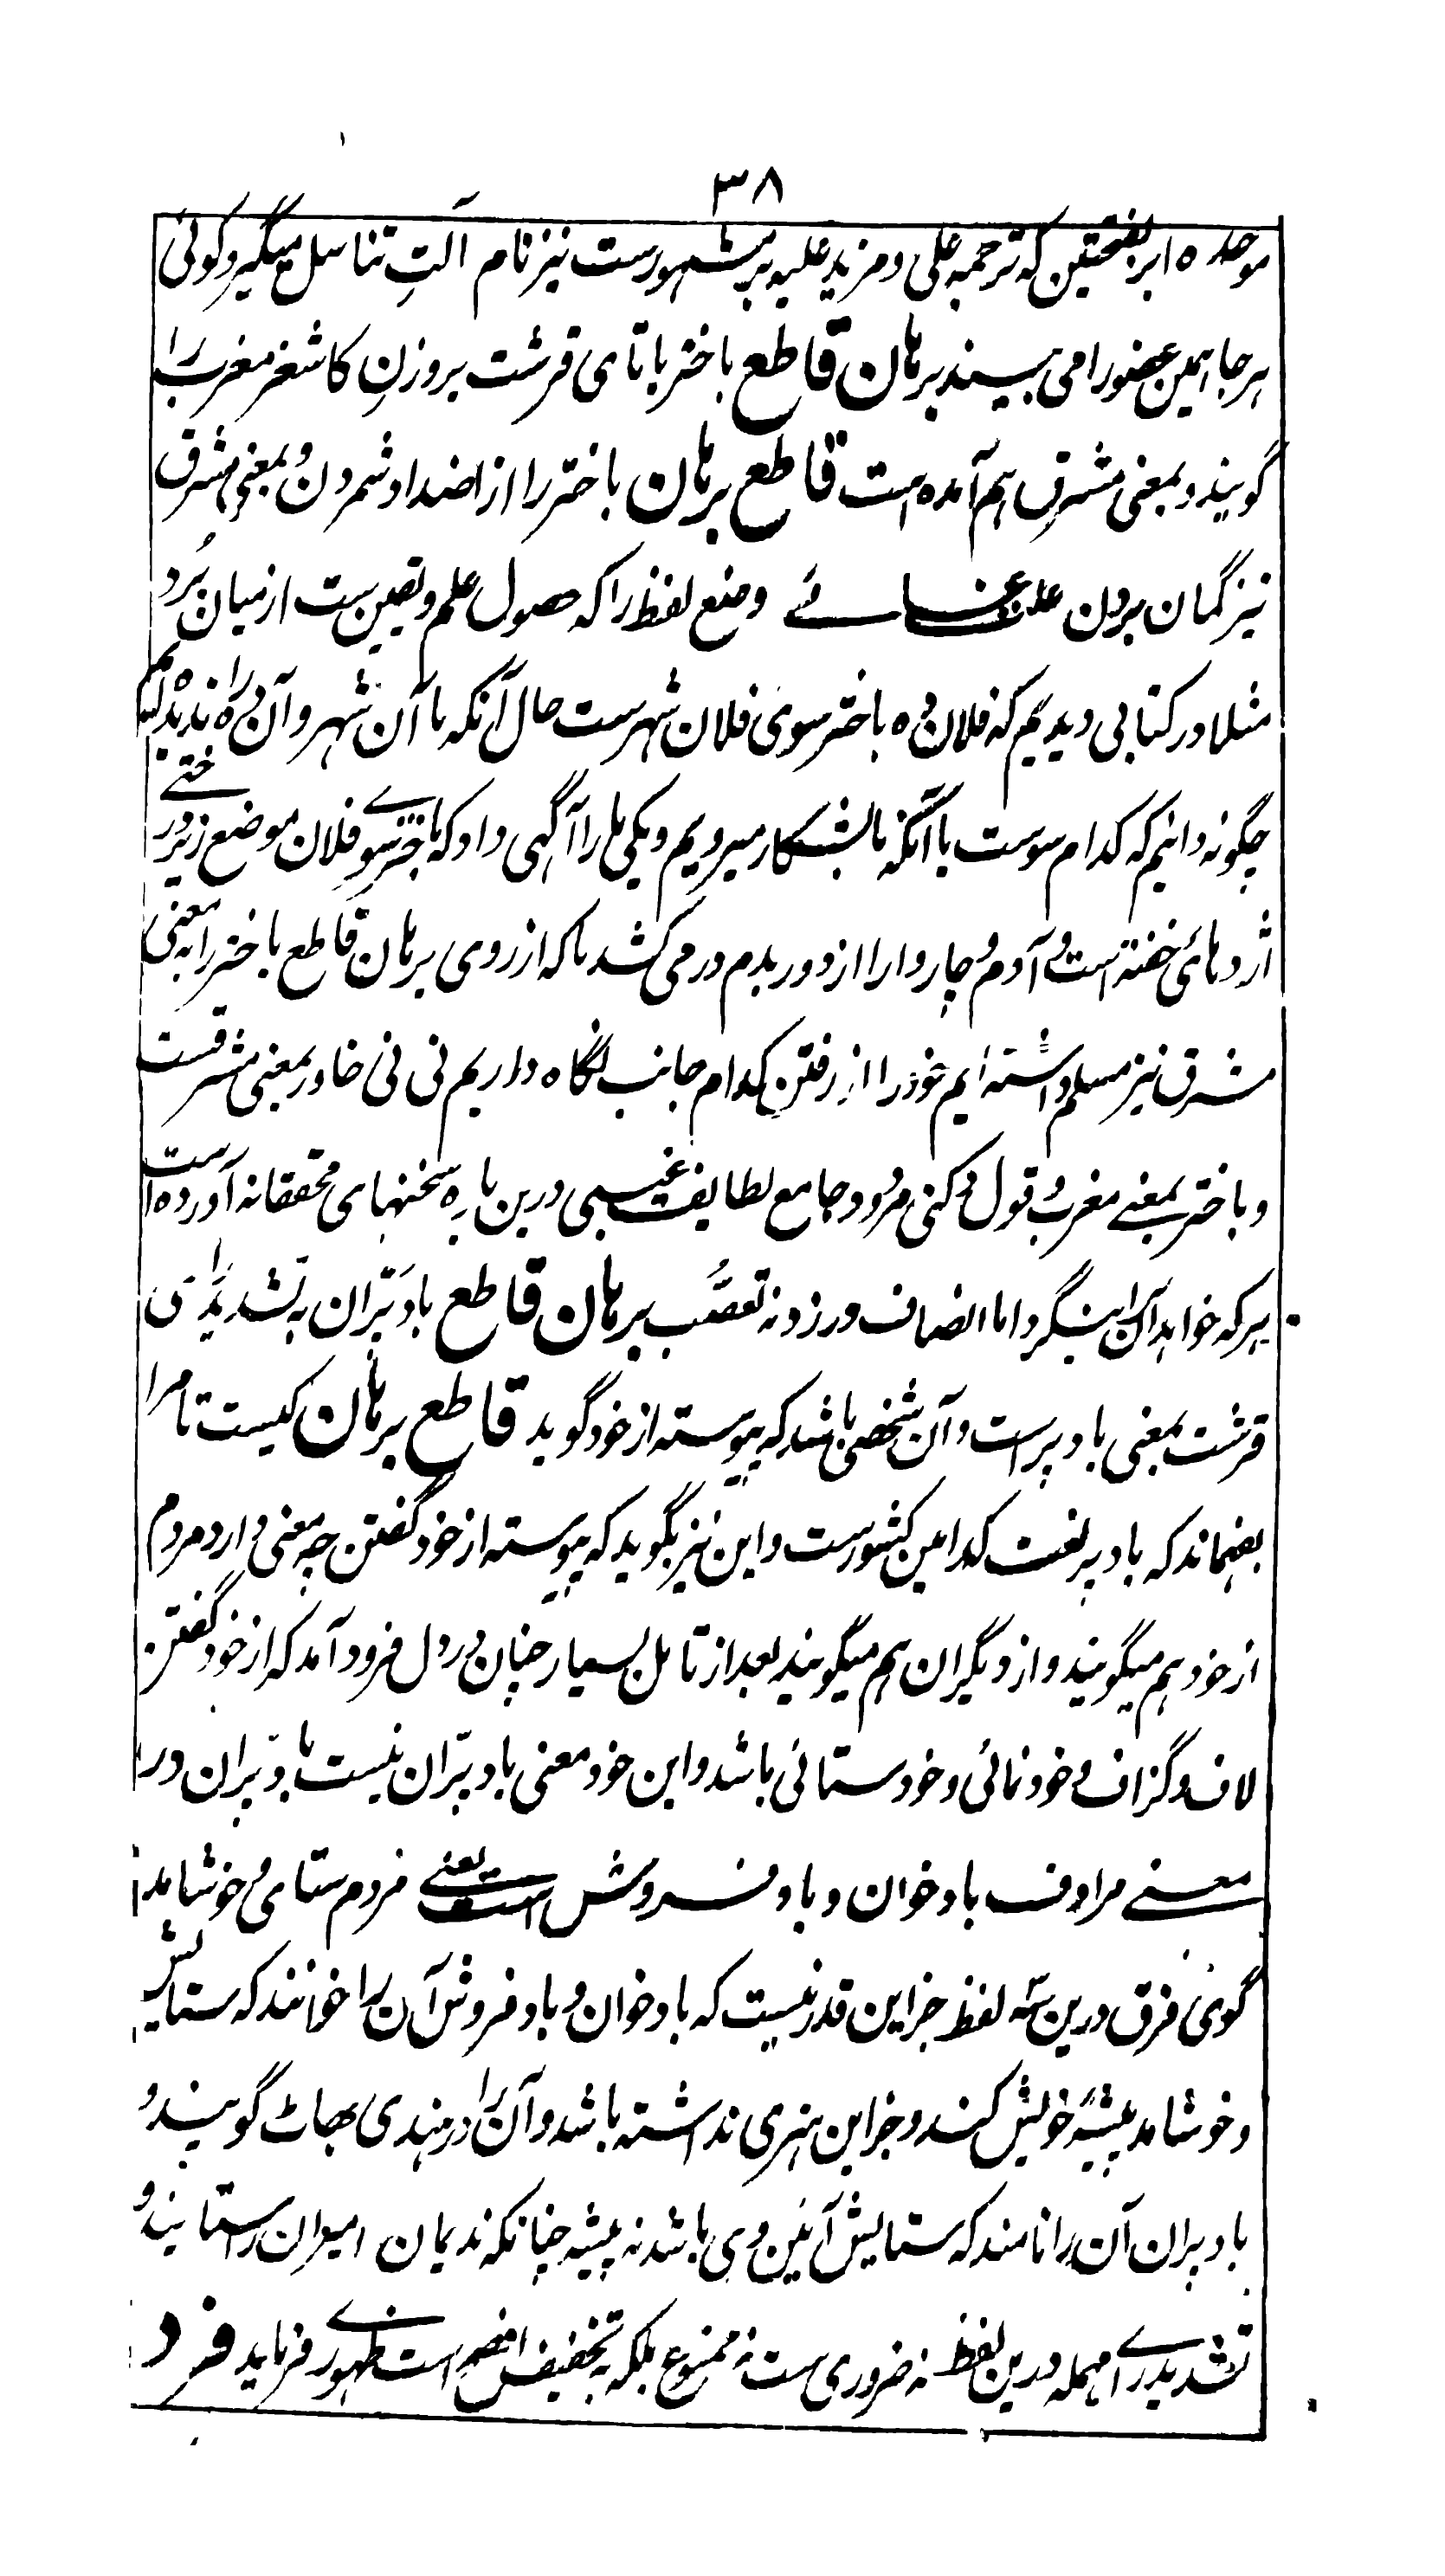 ۳۸
موحده ابر بفتحتین که ترجمهٔ علی و مزید علیه بر مشهورست نیز نام آلتِ تناسل میگیرد گوئی
هر جا همین عضو را می بیند برهان قاطع باختر با تای قرشت بروزنِ کاشغر مغرب را
گویند و بمعنی مشرق هم آمده است قاطع برهان باختر را از اضداد شمردن و بمعنی مشرق
نیز گمان بردن وضع لفظ را که حصول علم و یقین ست از میان بُرد
مثلا در کتابی دیدیم که فلان ده باختر سوی فلان شهرست حال آنکه ما آن شهر و آن ده را ندیده ایم
چگونه دانیم که کدام سوست یا آنکه ما بشکار میرویم و یکی ما را آگهی داد که باختر سوے فلان موضع زیر درختے
اژدهائی خفته است و آدم و چاروا را از دور بدم درمی کشد ما که از روی برهان قاطع باختر را بمعنی
مشرق نیز مسلم داشته ایم خود را از رفتنِ کدام جانب نگاه داریم نی نی خاور بمعنی مشرقست
و باختر بمعنے مغرب و قول دکنی مردود جامع لطایف غیبی درین باره سخنهای محققانه آورده است
هر که خواهد آن را بنگرد اما انصاف ورزد نه تعصُّب برهان قاطع بادپَرّان به تشدید رای
قرشت بمعنی باد پراست و آن شخصی باشد که پیوسته از خود گوید قاطع برهان کیست تا مرا
بفهماند که باد پر لغت کدامین کشورست و این نیز بگوید که پیوسته از خود گفتن چه معنی دارد مردم
از خود هم میگویند و از دیگران هم میگویند بعد از تامل بسیار چنان در دل فرود آمد که از خود گفتن
لاف و گزاف و خود نمائی و خودستائی باشد و این خود معنی باد پرّان نیست باد پرّان در
معنے مرادف بادخوان و بادفروش است یعنے مردم ستای و خوشامد
گوی فرق درین سه لفظ جز این قدر نیست که بادخوان و بادفروش آن را خوانند که ستایش
و خوشامد پیشهٔ خویش کند و جز این هنری نداشته باشد و آن را در هندی بھاٹ گویند و
باد پران آن را نامند که ستایش آئین وی باشد نه پیشه چنانکه ندیمان امیران را ستایند و
تشدید رای مهمله درین لفظ نه ضروری ست نه ممنوع بلکه به تخفیف افصح است ظهورے فرماید فرد